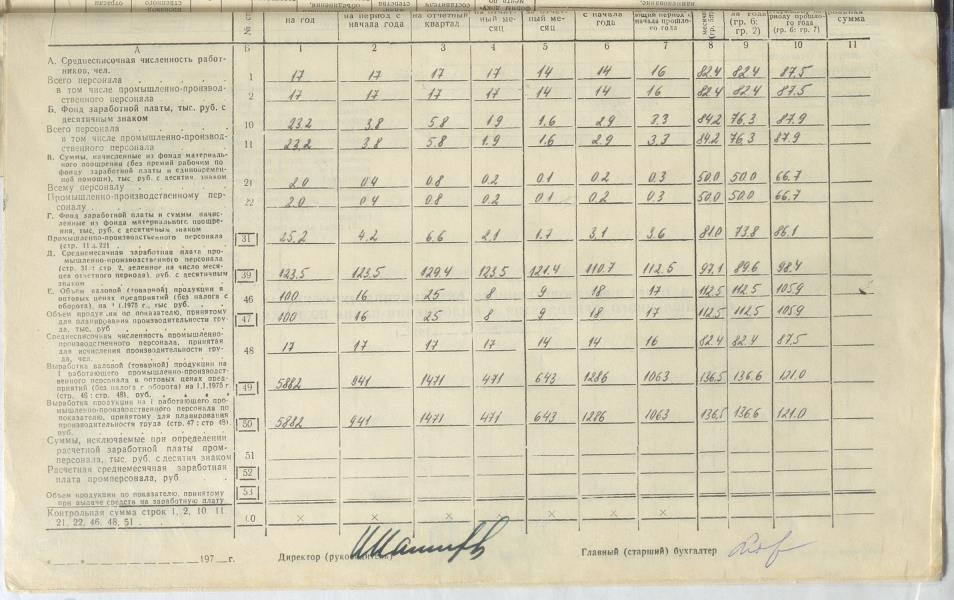 на год
на период с начала года
на отчетный квартал
ный месяц
ный месяц
с начала года
ющий период с начала прошлого года
(гр. 6: гр. 2)
риоду прошлого года (гр. 6: гр. 7)
сумма
А Б 1 2 3 4 5 6 7 8 9 10 11
А. Среднесписочная численность работ-
ников, чел.
Всего персонала 1 17 17 17 17 14 14 16 82.4 82.4 87.5
в том числе промышленно-производ-
ственного персонала 2 17 17 17 17 14 14 16 82.4 82.4 87.5
Б. Фонд заработной платы, тыс. руб. с
десятичным знаком
Всего персонала 10 23.2 3.8 5.8 1.9 1.6 2.9 3.3 84.2 76.3 87.9
в том числе промышленно-производ-
ственного персонала 11 23.2 3.8 5.8 1.9 1.6 2.9 3.3 84.2 76.3 87.9
В. Суммы, начисленные из фонда материаль-
ного поощрения (без премий рабочим по
фонду заработной платы и единовремен-
ной помощи), тыс. руб. с десятич. знаком
Всему персоналу 21 2.0 0.4 0.8 0.2 0.1 0.2 0.3 50.0 50.0 66.7
Промышленно-производственному пер-
соналу 22 2.0 0.4 0.8 0.2 0.1 0.2 0.3 50.0 50.0 66.7
Г. Фонд заработной платы и суммы, начис-
ленные из фонда материального поощре-
ния, тыс. руб. с десятичным знаком
Промышленно-производственного персонала
31 25.2 4.2 6.6 2.1 1.7 3.1 3.6 81.0 73.8 86.1
Д. Среднемесячная заработная плата про-
мышленно-производственного персонала
(стр. 31 : стр. 2, деленное на число меся-
цев отчетного периода), руб. с десятичным
знаком 39 123.5 123.5 129.4 123.5 121.4 110.7 112.5 97.1 89.6 98.4
Е. Объем валовой (товарной) продукции в
оптовых ценах предприятий (без налога с
оборота), на 1.1.1975 г., тыс. руб. 46 100 16 25 8 9 18 17 112.5 112.5 105.9
Объем продукции по показателю, принятому
для планирования производительности тру-
да, тыс. руб 47 100 16 25 8 9 18 17 112.5 112.5 105.9
Среднесписочная численность промышленно-
производственного персонала, принятая
для исчисления производительности тру-
да, чел. 48 17 17 17 17 14 14 16 82.4 82.4 87.5
Выработка валовой (товарной) продукции на
1 работающего промышленно-производст-
венного персонала в оптовых ценах пред-
приятий (без налога с оборота) на 1.1.1975 г.
(стр. 46 : стр. 48), руб. 49 5882 941 1471 471 643 1286 1063 136.5 136.6 121.0
Выработка продукции на 1 работающего про-
мышленно-производственного персонала по
показателю, принятому для планирования
производительности труда (стр. 47 : стр 48),
руб. 50 5882 941 1471 471 643 1286 1063 136.5 136.6 121.0
Суммы, исключаемые при определении
расчетной заработной платы пром-
персонала, тыс. руб. с десятич знаком 51
Расчетная среднемесячная заработная
плата промперсонала, руб 52
Объем продукции по показателю, принятому
при выдаче средств на заработную плату 53
Контрольная сумма строк 1, 2, 10 11
21, 22, 46, 48, 51 60 × × × × × × ×
197 г. Директор (руководитель) Главный (старший) бухгалтер